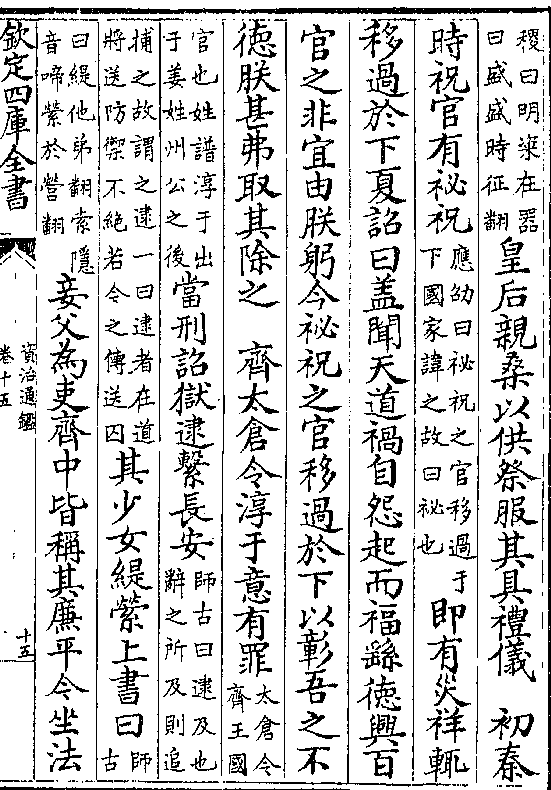 稷曰明粢在器
曰盛盛時征翻
皇后親桑以供祭服其具禮儀　初秦
時祝官有祕祝
應劭曰祕祝之官移過于
下國家諱之故曰祕也
即有災祥輒
移過於下夏詔曰盖聞天道禍自怨起而福繇徳興百
官之非宜由朕躬今祕祝之官移過於下以彰吾之不
徳朕甚弗取其除之　齊太倉令淳于意有罪
太倉令
齊王國
官也姓譜淳于出
于姜姓州公之後
當刑詔獄逮繫長安
師古曰逮及也
辭之所及則追
捕之故謂之逮一曰逮者在道
將送防禦不絶若今之傳送囚
其少女緹縈上書曰
師
古
曰緹他弟翻索隱
音啼縈於營翻
妾父為吏齊中皆稱其廉平今坐法
欽定四庫全書
資治通鑑
卷十五
十五